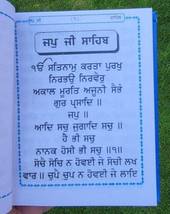 ਜਪੁ ਜੀ ਸਾਹਿਬ
ੴ ਸਤਿਨਾਮੁ ਕਰਤਾ ਪੁਰਖੁ
ਨਿਰਭਉ ਨਿਰਵੈਰੁ
ਅਕਾਲ ਮੂਰਤਿ ਅਜੂਨੀ ਸੈਭੰ
ਗੁਰ ਪ੍ਰਸਾਦਿ ॥
ਜਪੁ ॥
ਆਦਿ ਸਚੁ ਜੁਗਾਦਿ ਸਚੁ ॥
ਹੈ ਭੀ ਸਚੁ
ਨਾਨਕ ਹੋਸੀ ਭੀ ਸਚੁ ॥੧॥
ਸੋਚੈ ਸੋਚਿ ਨ ਹੋਵਈ ਜੇ ਸੋਚੀ ਲਖ
ਵਾਰ ॥ ਚੁਪੈ ਚੁਪ ਨ ਹੋਵਈ ਜੇ ਲਾਇ